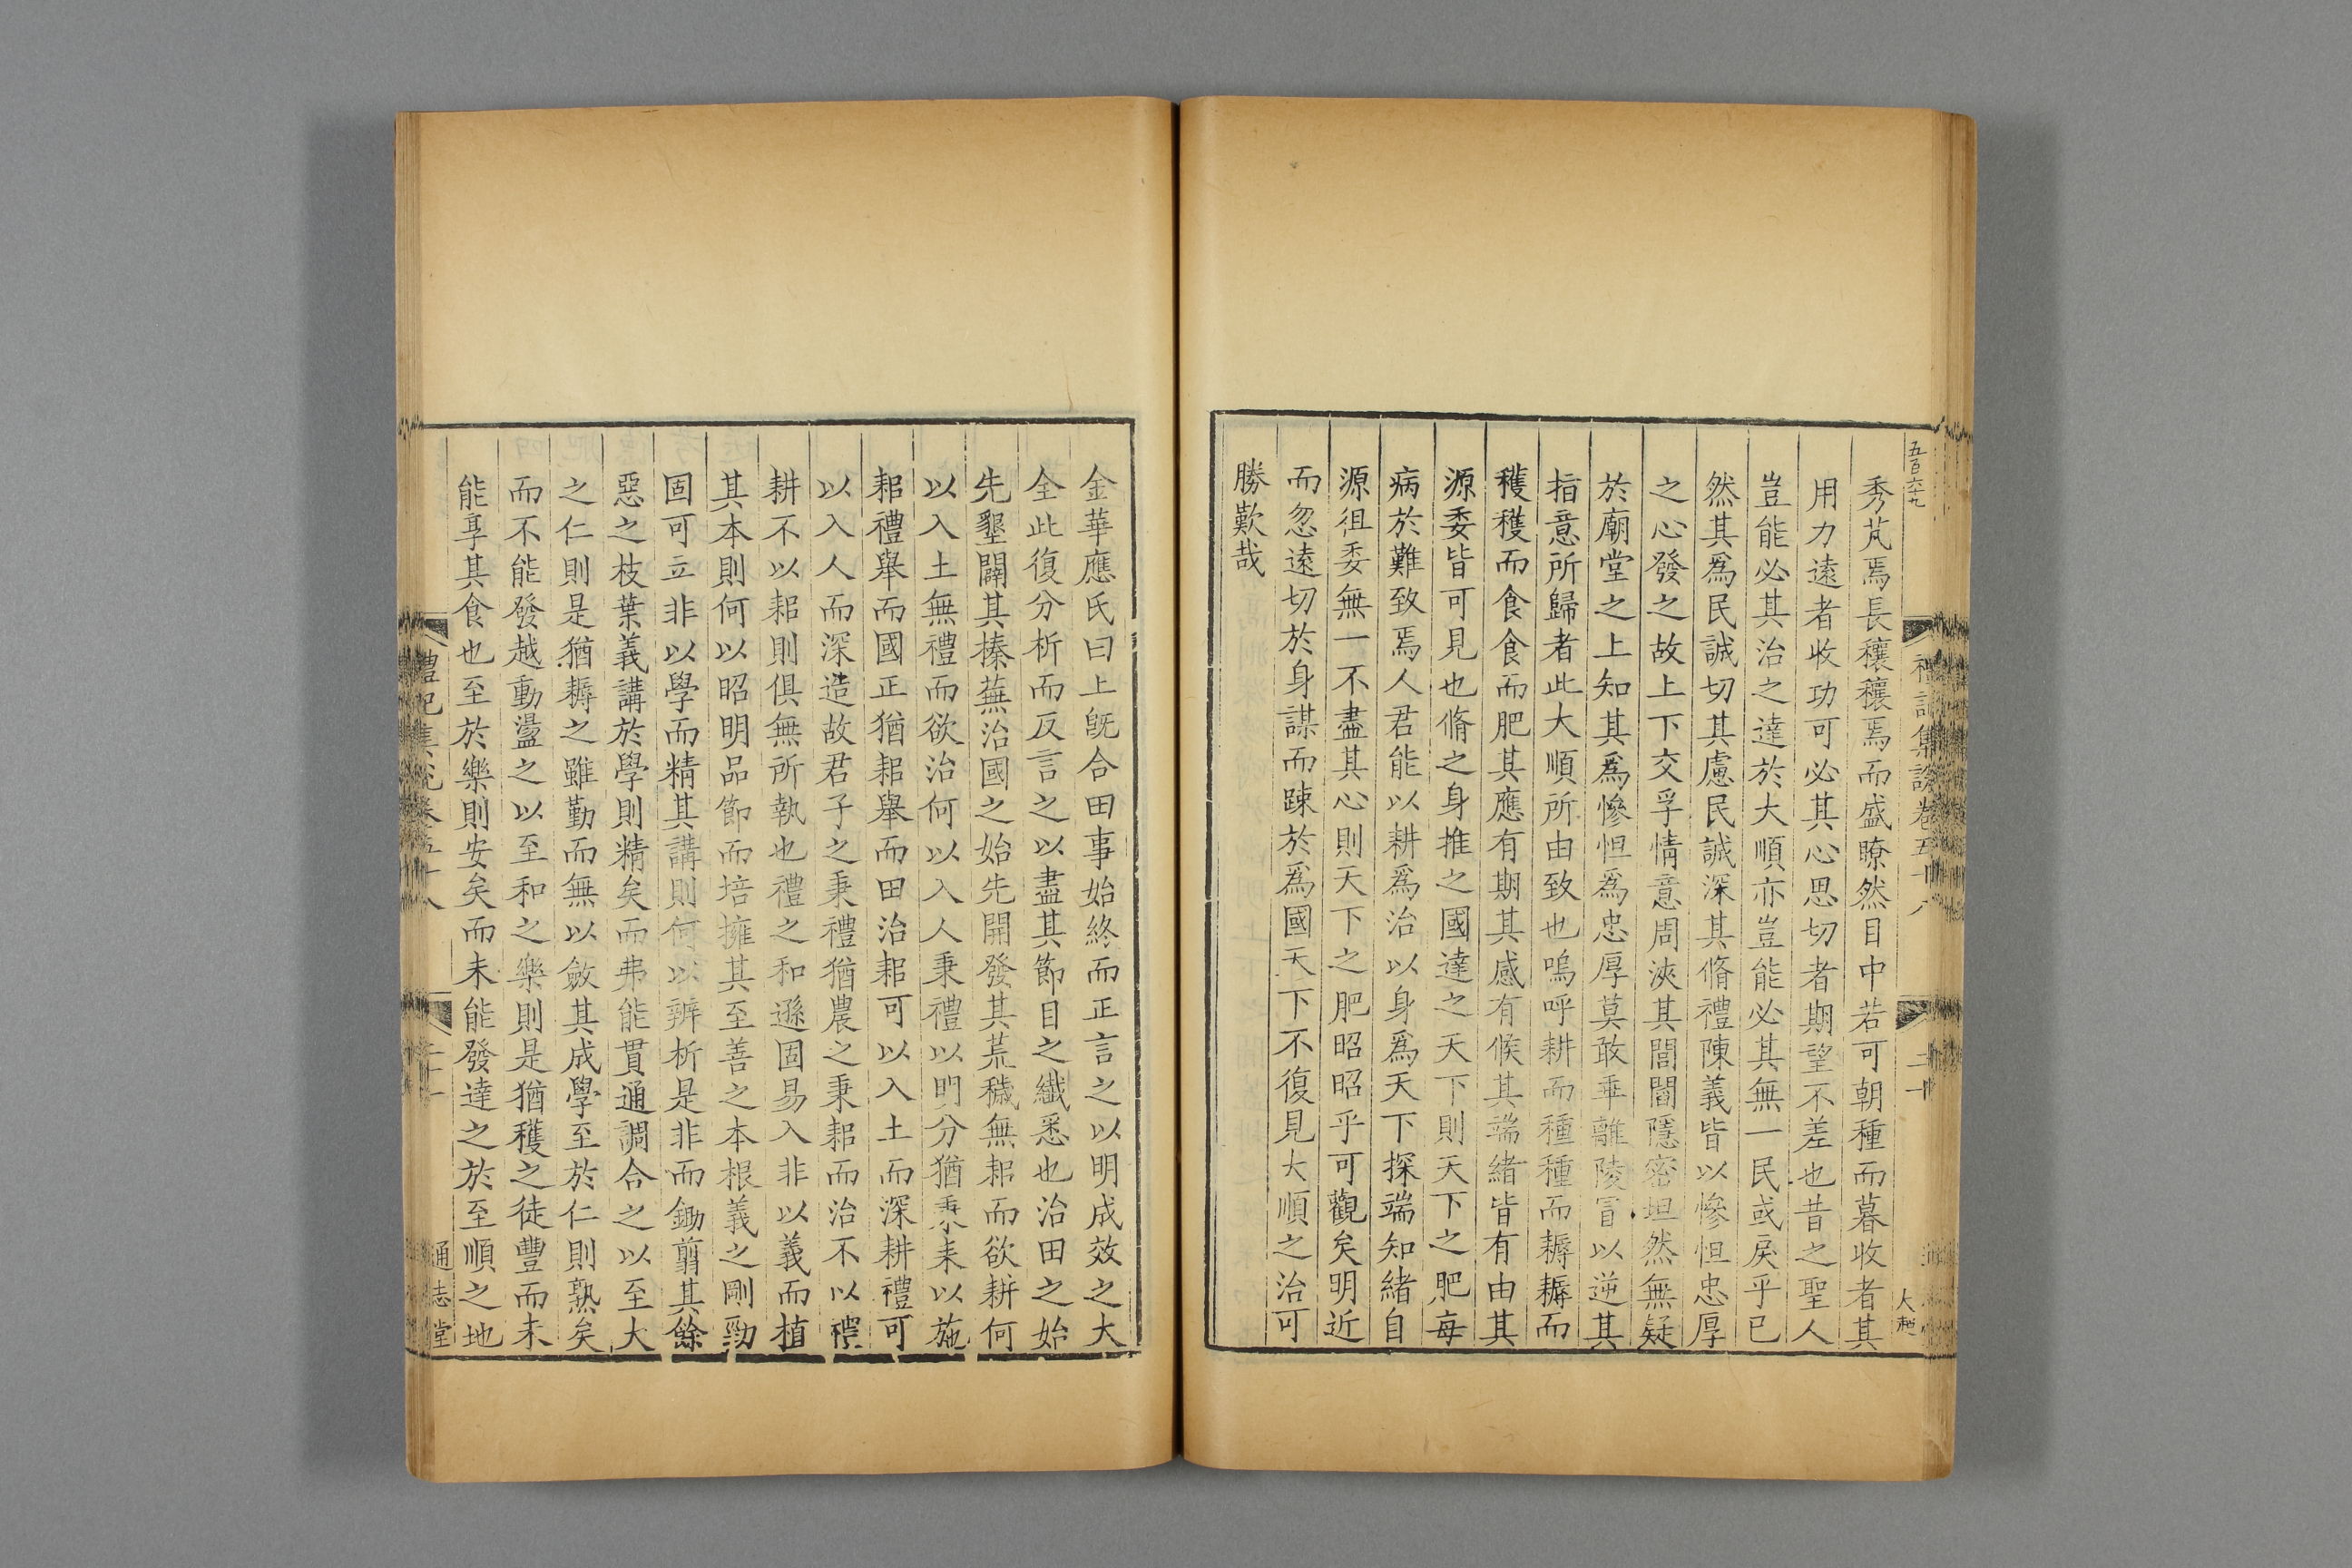 五百六十九
禮記集說卷五十八
二十
大趙
秀芃焉長穰穰焉而盛瞭然目中若可朝種而暮收者其
用力遠者收功可必其心思切者期望不差也昔之聖人
豈能必其治之達於大順亦豈能必其無一民或戾乎已
然其爲民誠切其慮民誠深其脩禮陳義皆以慘怛忠厚
之心發之故上下交孚情意周浹其閭閻隱密坦然無疑
於廟堂之上知其爲慘怛爲忠厚莫敢乖離陵冒以逆其
指意所歸者此大順所由致也嗚呼耕而種種而耨耨而
穫穫而食食而肥其應有期其感有候其端緒皆有由其
源委皆可見也脩之身推之國達之天下則天下之肥每
病於難致焉人君能以耕爲治以身爲天下探端知緒自
源徂委無一不盡其心則天下之肥昭昭乎可觀矣明近
而忽遠切於身謀而踈於爲國天下不復見大順之治可
勝歎哉
金華應氏曰上旣合田事始終而正言之以明成效之大
全此復分析而反言之以盡其節目之纖悉也治田之始
先墾闢其榛蕪治國之始先開發其荒穢無耜而欲耕何
以入土無禮而欲治何以入人秉禮以門分猶秉耒以施
耜禮舉而國正猶耜舉而田治耜可以入土而深耕禮可
以入人而深造故君子之秉禮猶農之秉耜而治不以禮
耕不以耜則俱無所執也禮之和遜固易入非以義而植
其本則何以昭明品節而培擁其至善之本根義之剛勁
固可立非以學而精其講則何以辨析是非而鋤翦其餘
惡之枝葉義講於學則精矣而弗能貫通調合之以至大
之仁則是猶耨之雖勤而無以斂其成學至於仁則熟矣
而不能發越動盪之以至和之樂則是猶穫之徒豐而未
能享其食也至於樂則安矣而未能發達之於至順之地
禮記集說卷五十八
二十一
通志堂